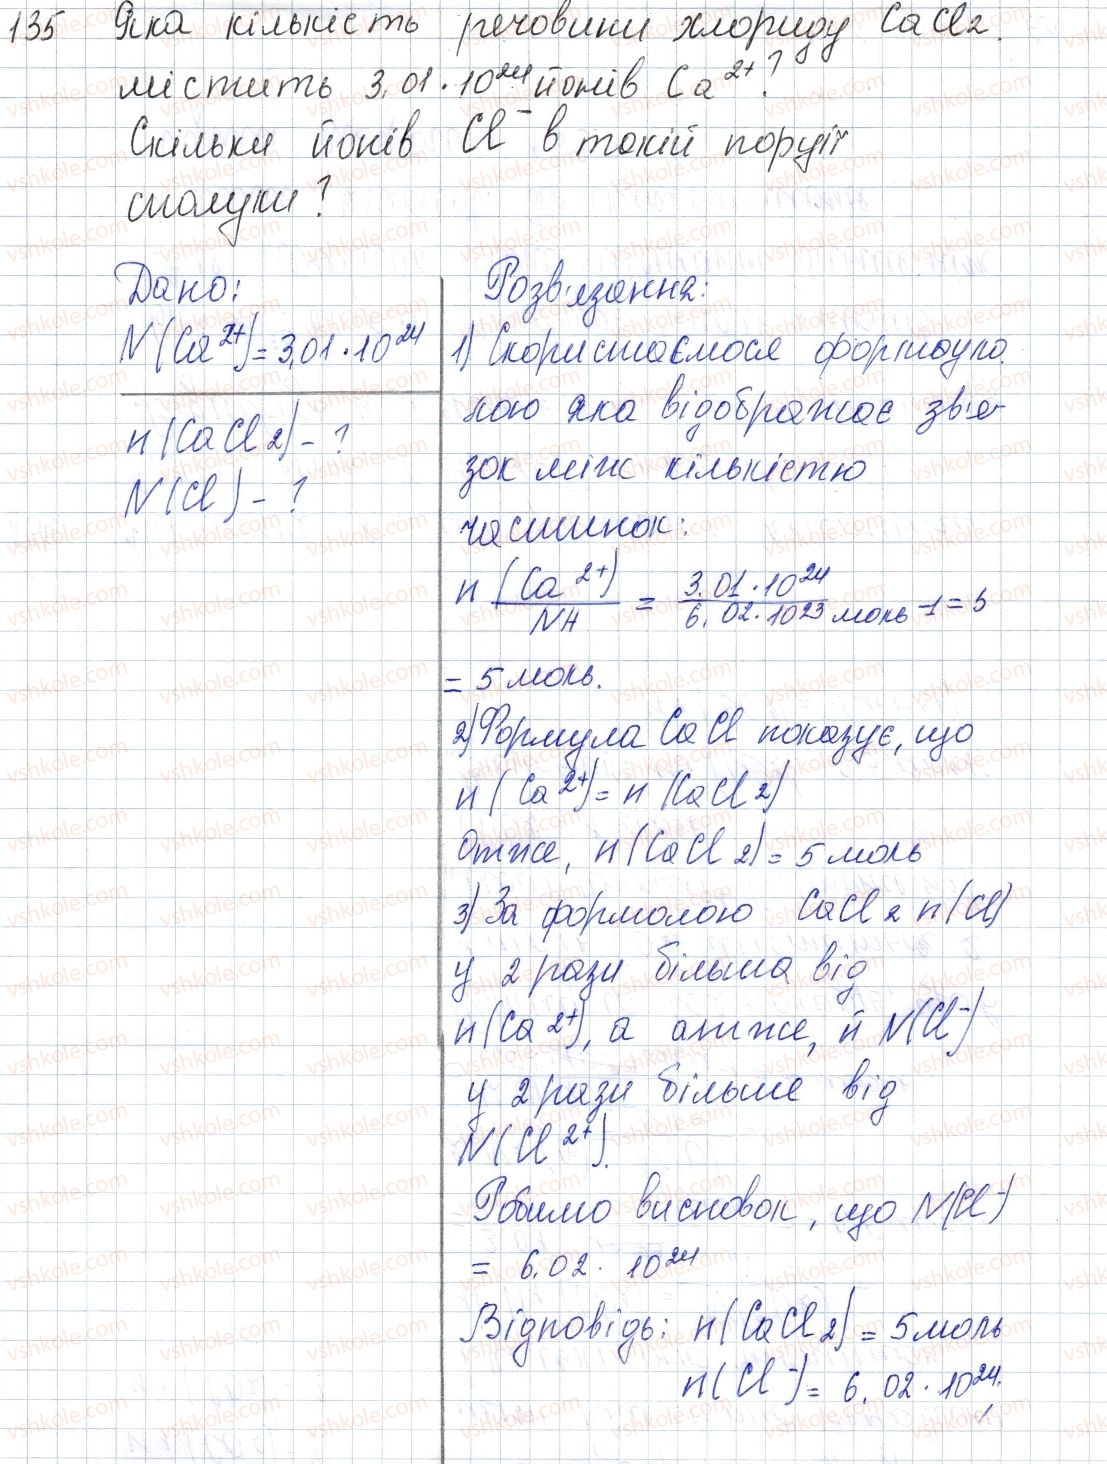 135 Яка кількість речовини хлориду CaCl2.
містить 3,01·10²⁴ йонів Ca²⁺?
Скільки йонів Cl⁻ в такій порції
сполуки?
Дано:
N(Ca²⁺)=3,01·10²⁴
n(CaCl2)-?
N(Cl)-?
Розв'язання:
1) Скористаємося формуло
кою яка відображає зв'я-
зок між кількістю
частинок:
n (Ca²⁺)/NA = 3.01·10²⁴/6.02·10²³ моль -1 = 5
= 5 моль.
2) Формула CaCl показує, що
n(Ca²⁺)=n(CaCl2)
Отже, n(CaCl2)=5 моль
3) За формолою CaCl2 n(Cl)
у 2 рази більша від
n(Ca²⁺), а отже, й N(Cl⁻)
у 2 рази більше від
N(Cl²⁺).
Робимо висновок, що N(Cl⁻)
= 6.02· 10²⁴
Відповідь: n(CaCl2)=5 моль
n(Cl⁻)= 6.02·10²⁴.